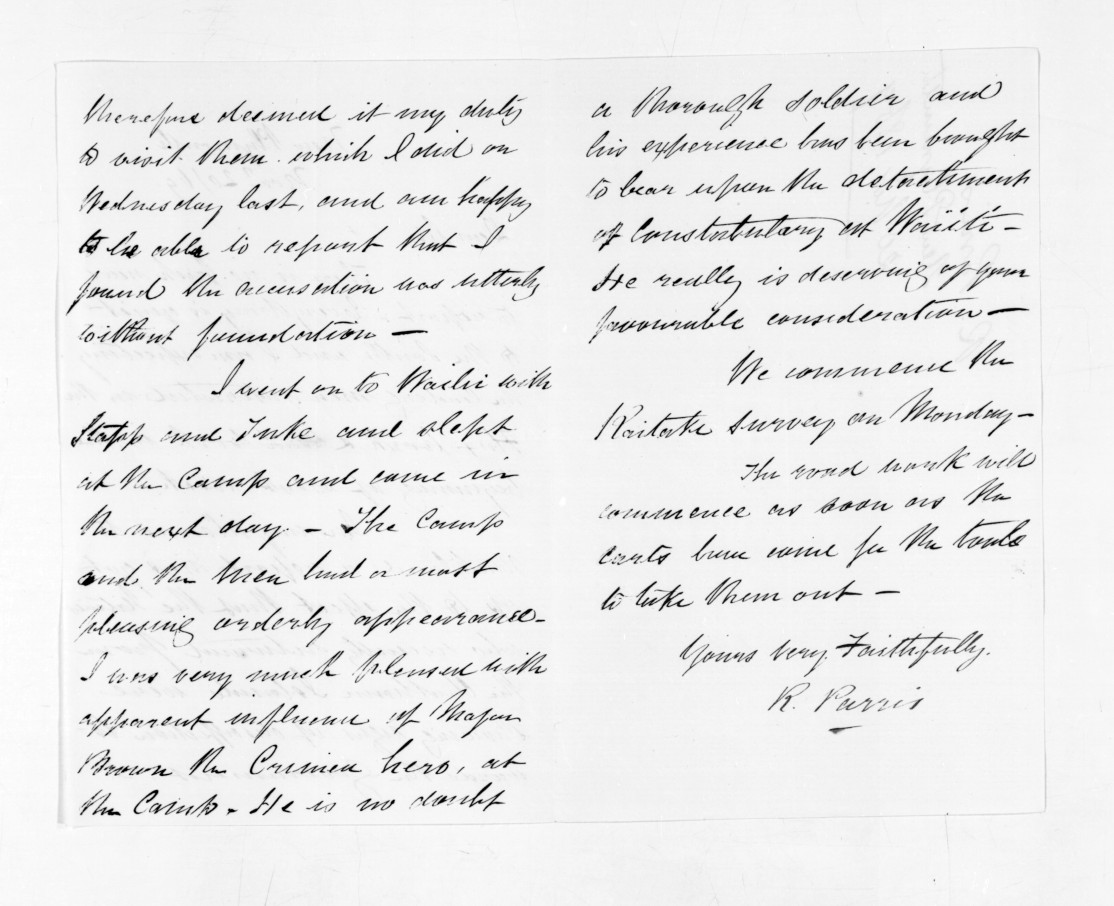 therefore deemed it my duty
to visit them which I did on
Wednesday last, and am happy
to be able to report that I
found the accusation was utterly
without foundation —
I went on to Waiiti with
Stapp and Tuke and slept
at the Camp and came in
the next day. — The Camp
and the men had a most
pleasing orderly appearance —
I was very much pleased with
apparent influence of Major
Brown the Crimea hero, at
the Camp. He is no doubt
a thorough soldier and
his experience has been brought
to bear upon the detachment
of Constabulary at Waiiti —
He really is deserving of your
favourable consideration —
We commence the
Kaitake survey on Monday —
The road work will
commence as soon as the
carts have come for the tools
to take them out —
Yours very Faithfully.
R. Parris